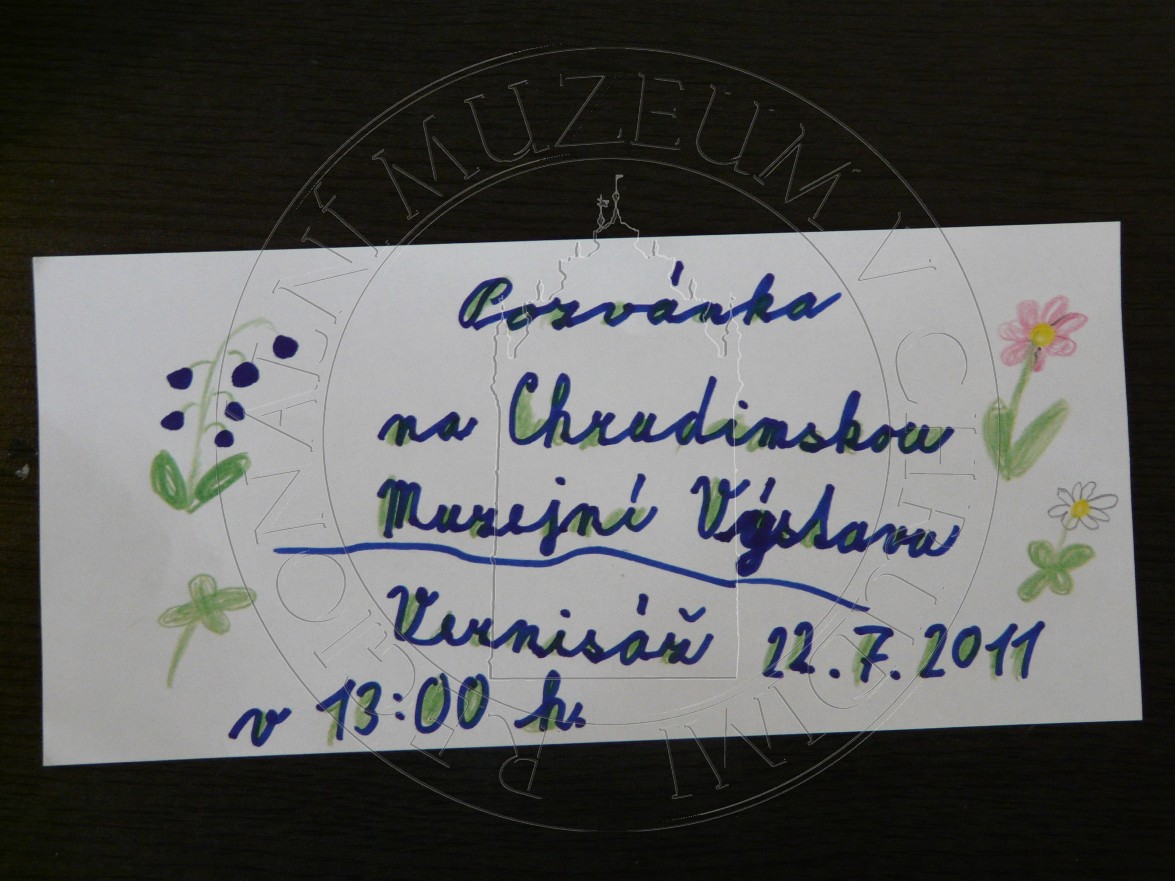 Pozvánka
na Chrudimskou
Muzejní Výstavu
Vernisáž 22.7.2011
v 13:00 h.
REGIONÁLNÍ MUZEUM V CHRUDIMI